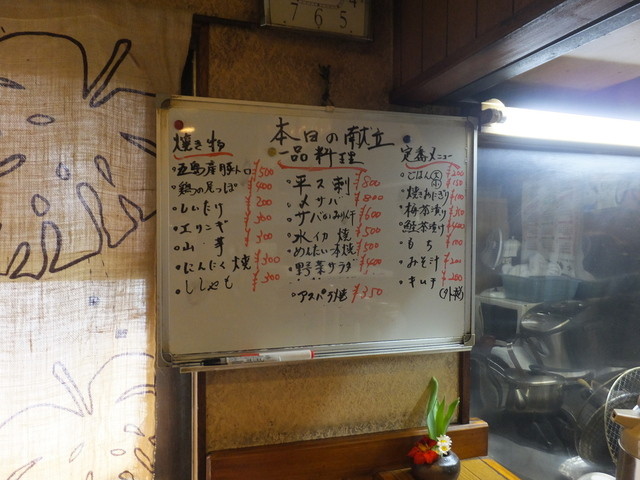 本日の献立
焼き物
五島産豚トロ ¥500
鶏の尾っぽ ¥400
しいたけ ¥200
エリンギ ¥300
山芋 ¥300
にんにく焼 ¥300
ししゃも ¥300
一品料理
平ス刺 ¥800
〆サバ ¥800
サバかみり干 ¥600
水イカ焼 ¥500
めんたい本焼 ¥500
野菜サラダ ¥400
アスパラ焼 ¥350
定番メニュー
ごはん 大 ¥200
小 ¥150
焼きおにぎり ¥100
梅茶漬け
鮭茶漬け ¥400
もち ¥100
みそ汁 ¥200
キムチ ¥200
7 6 5